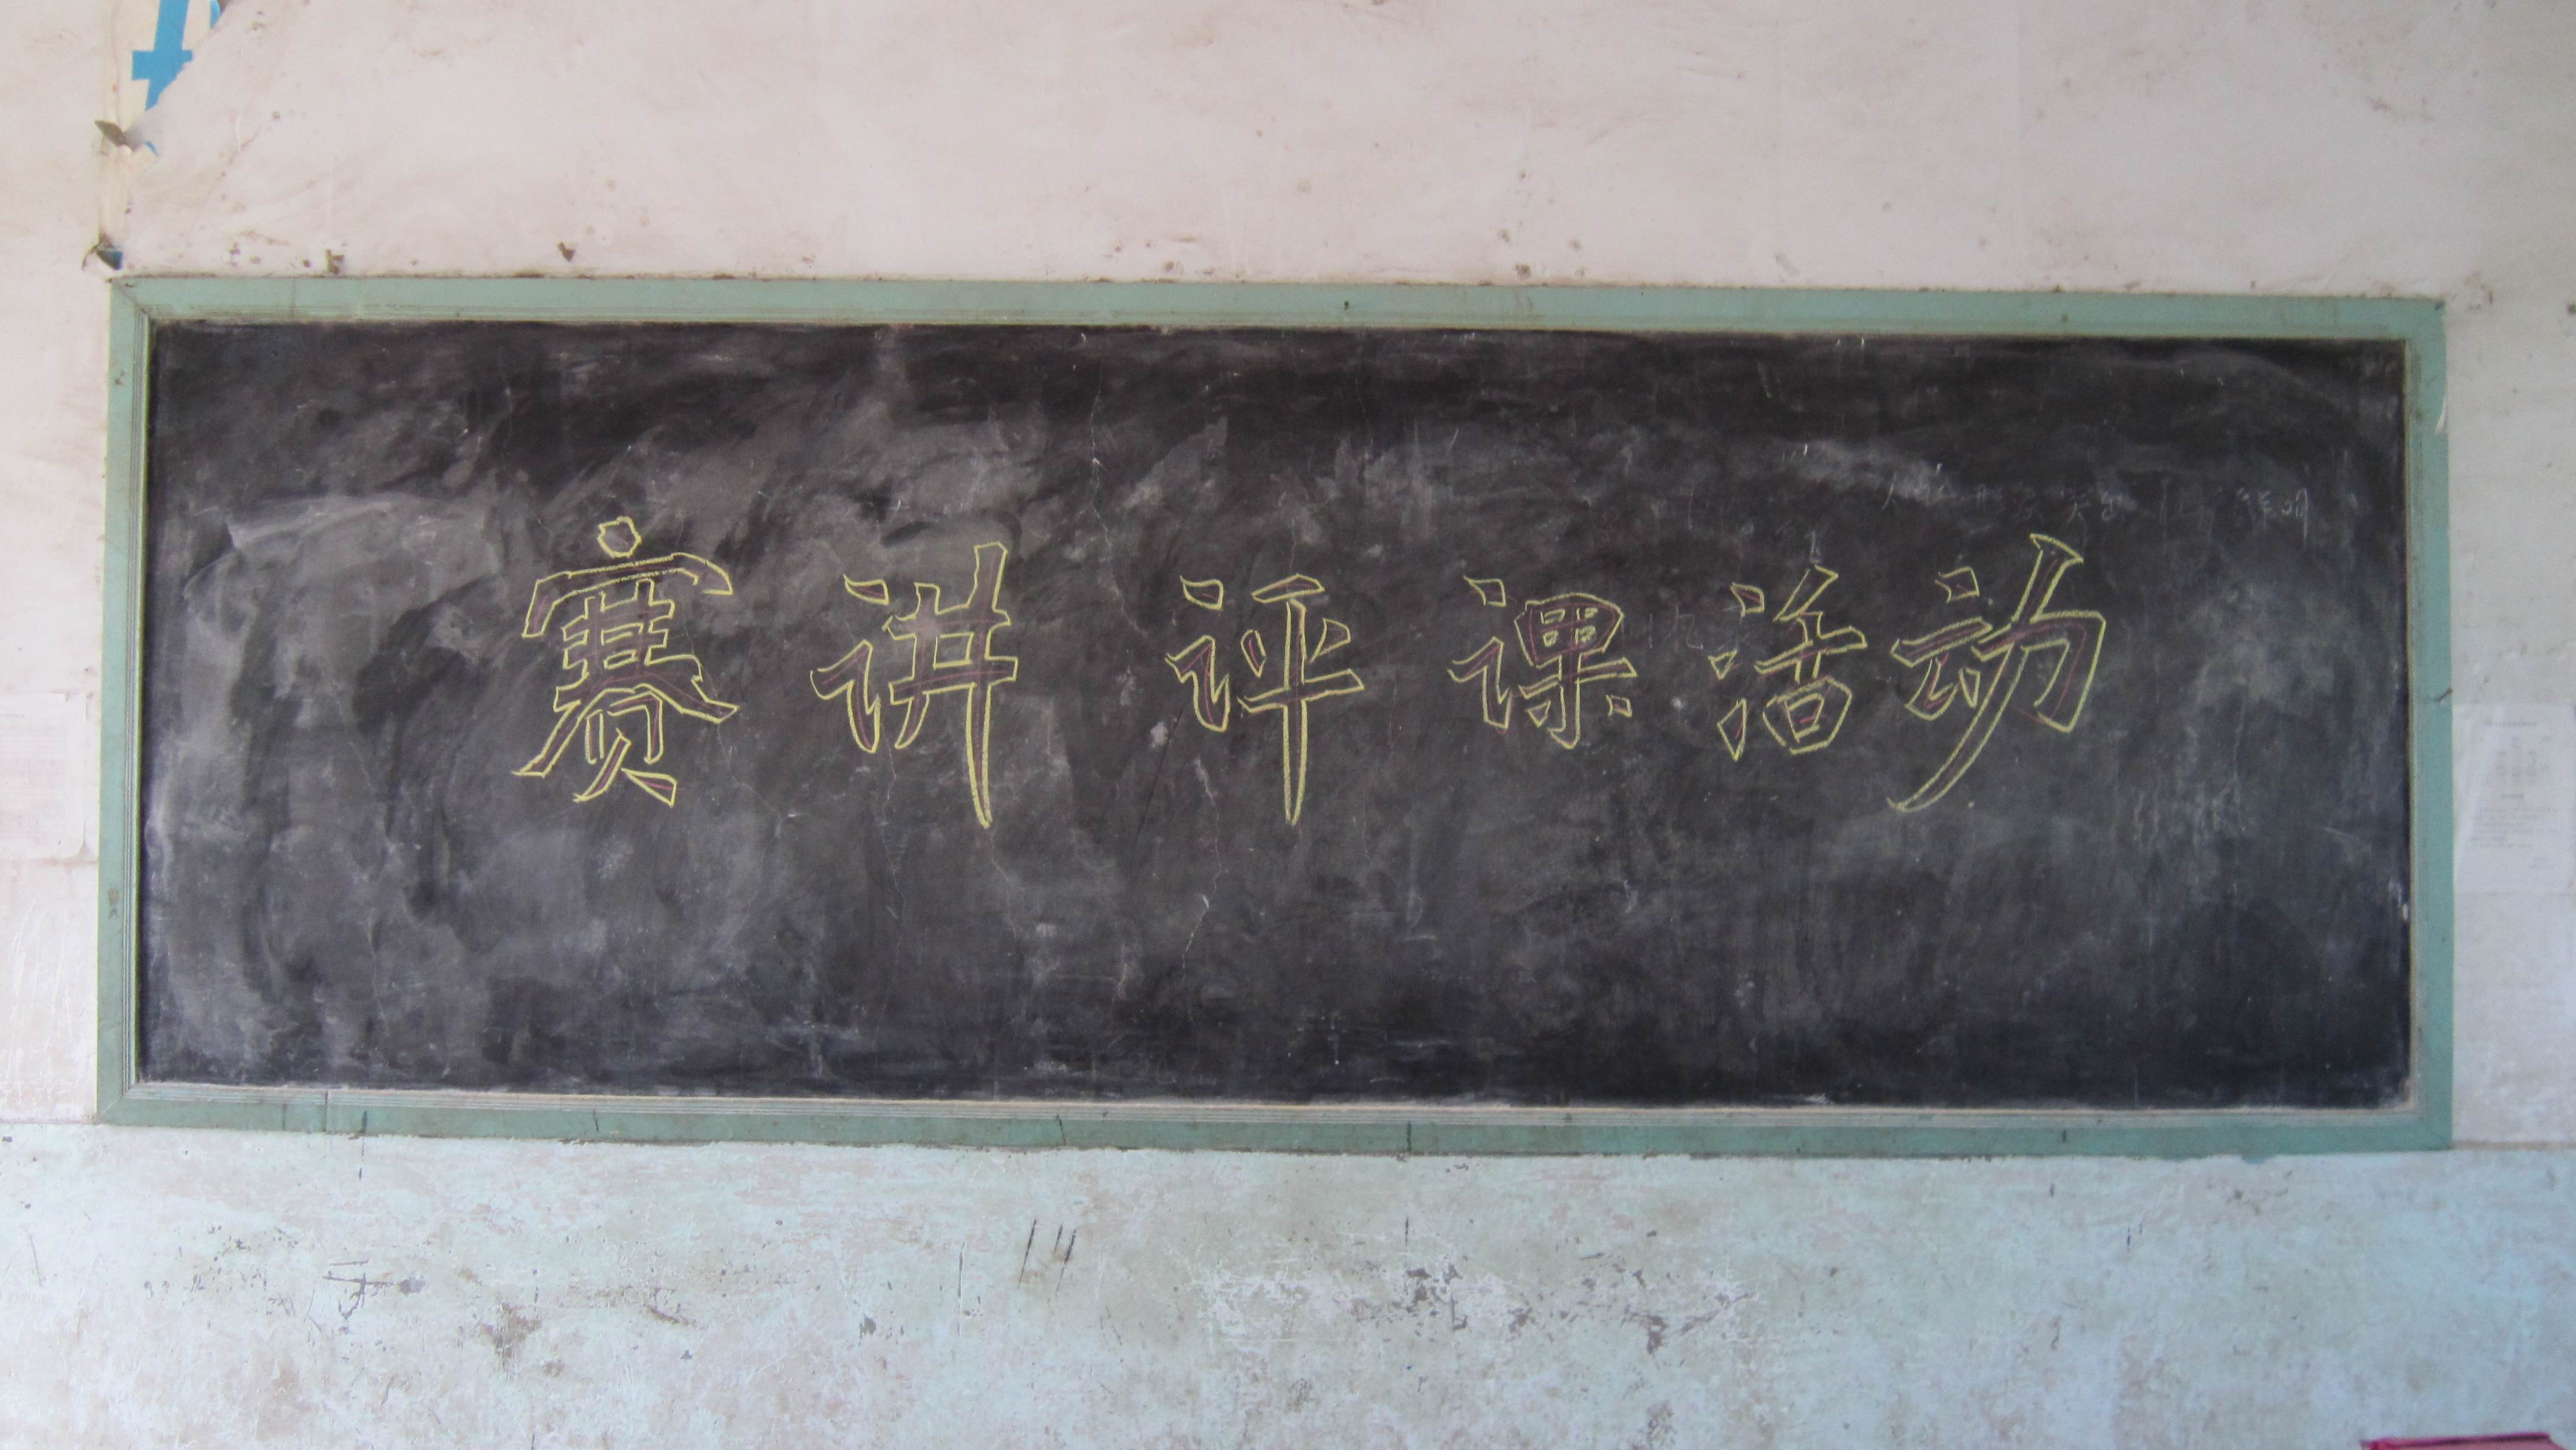 赛讲评课活动